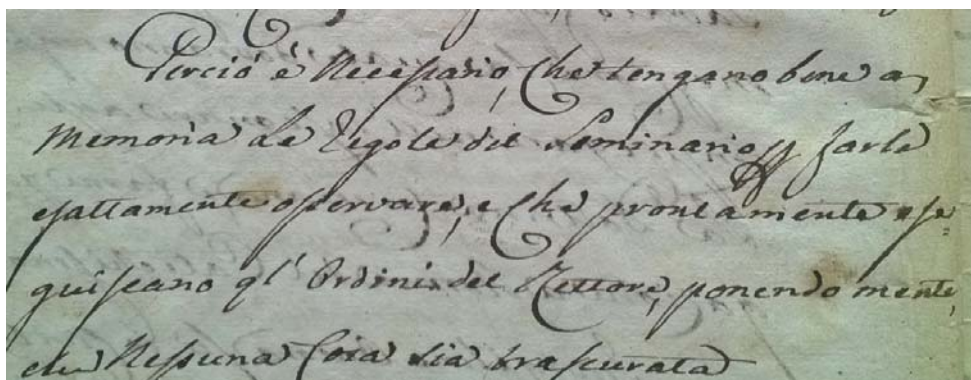 Perciò è Necessario, che tengano bene a
memoria le regole del Seminario, p farle
esattamente osservare, e che prontamente ese=
guiscano gl' Ordini del Rettore, ponendo mente,
che Nessuna Cosa sia trascurata